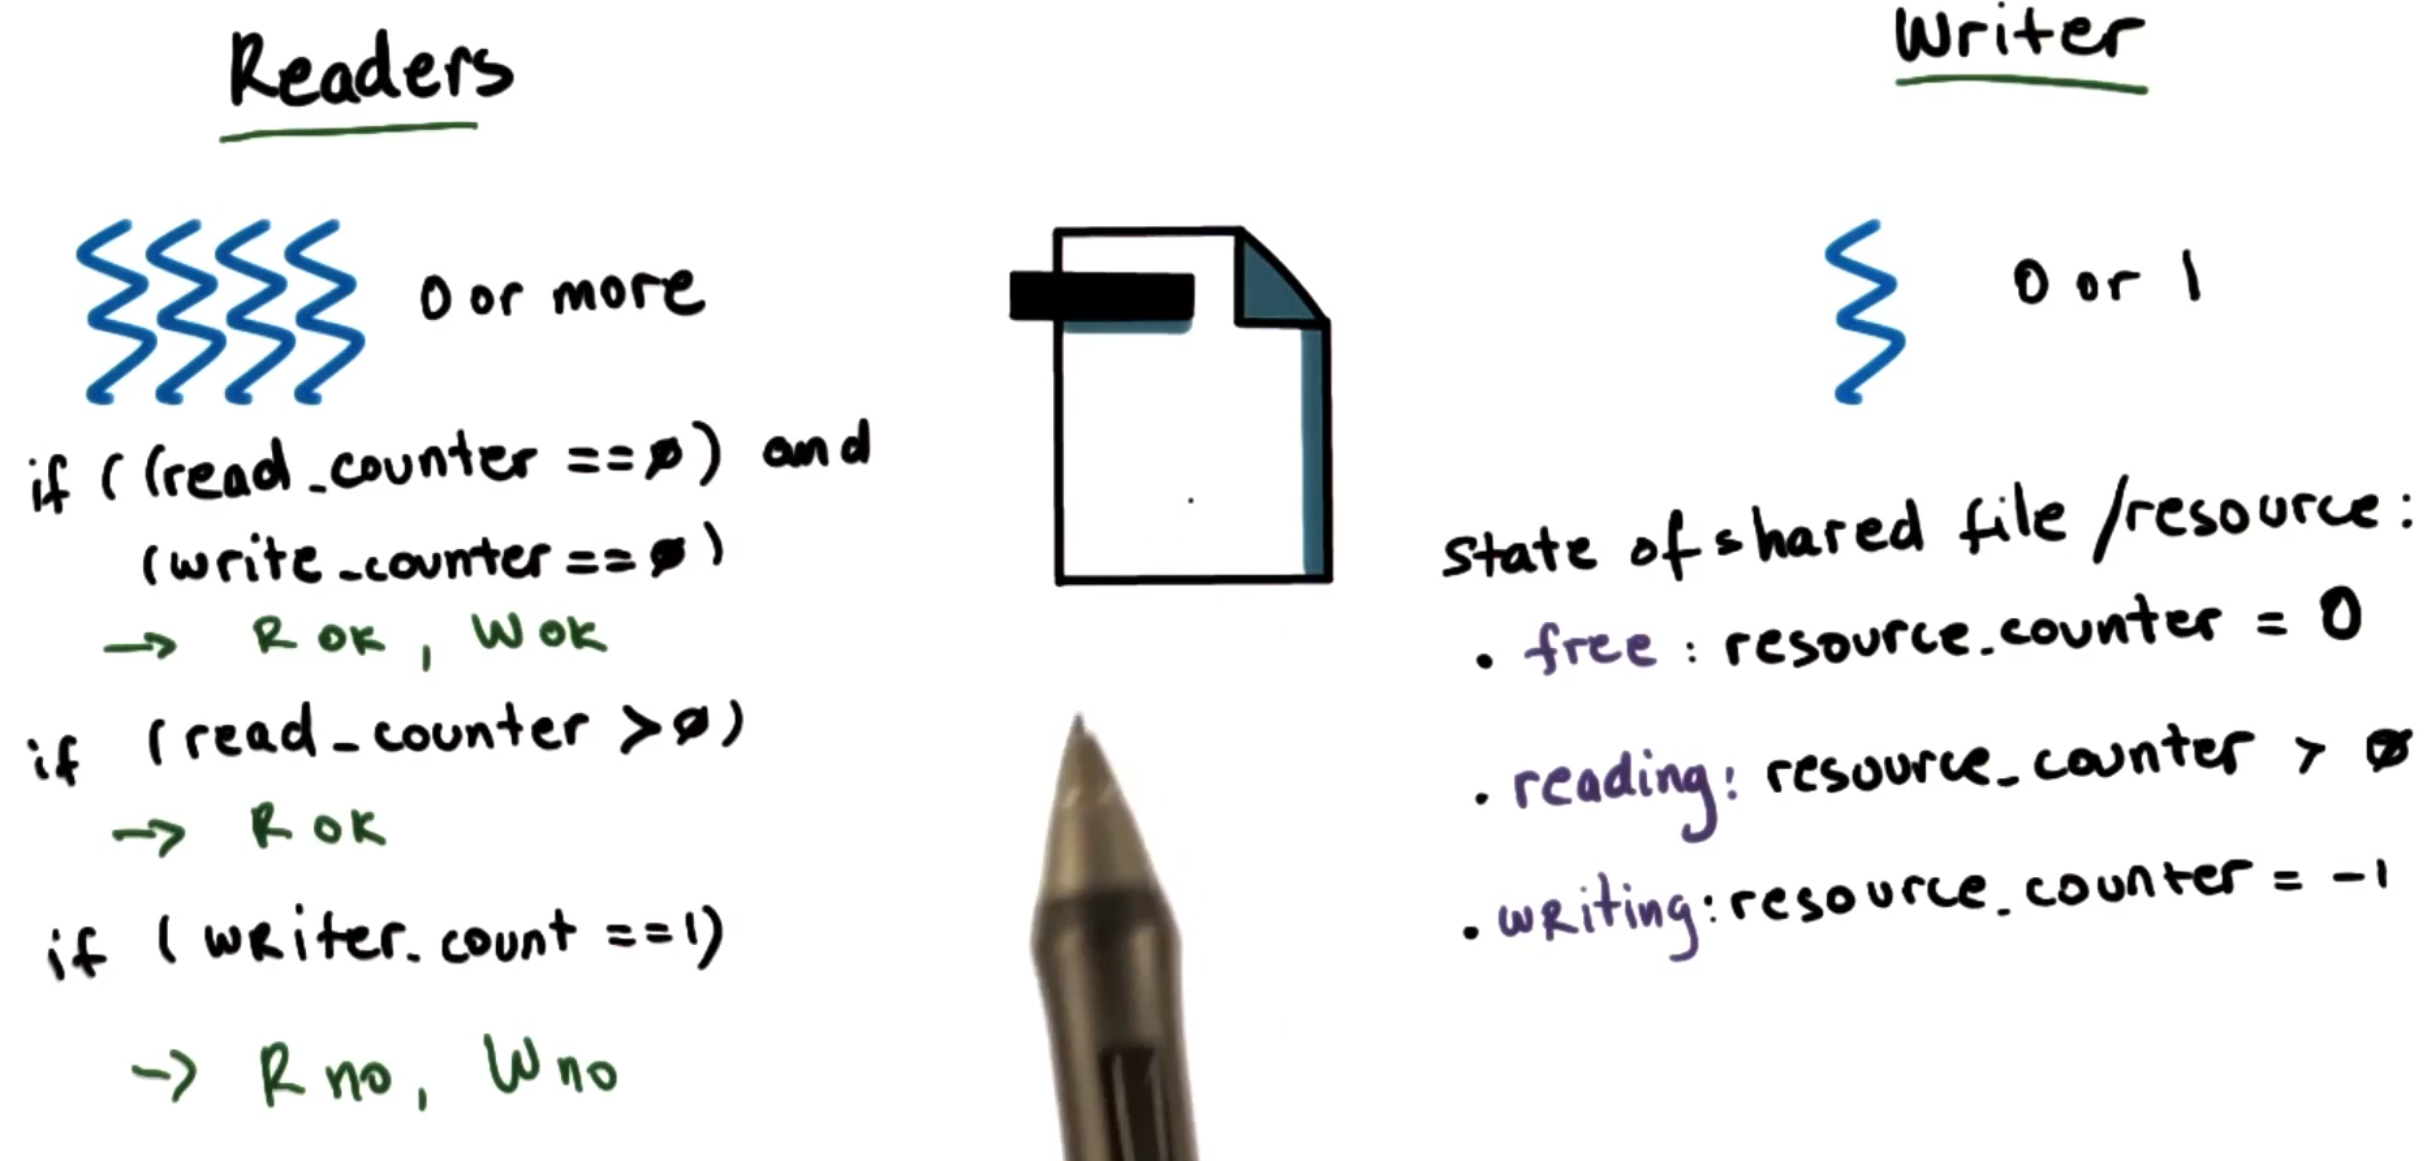 Readers
0 or more
if ((read_counter ==0) and
(write_counter==0)
→ R OK, W OK
if (read_counter >0)
→ R OK
if (writer_count ==1)
→ R no, W no
Writer
0 or 1
state of shared file /resource:
• free : resource_counter = 0
• reading: resource_counter > 0
• writing: resource_counter = -1